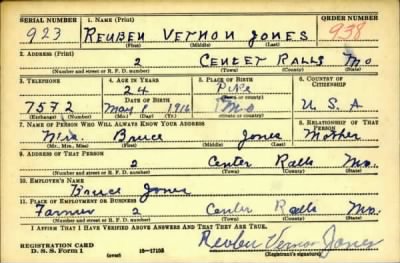 SERIAL NUMBER 1. NAME (Print) ORDER NUMBER
923 REUBEN VERNON JONES 938
(First) (Middle) (Last)
2. ADDRESS (Print)
2 CENTER RALLS MO
(Number and street or R. F. D. number) (Town) (County) (State)
3. TELEPHONE 4. AGE IN YEARS 5. PLACE OF BIRTH 6. COUNTRY OF CITIZENSHIP
24 Pike
DATE OF BIRTH (Town or county)
7572 May 8 1916 Mo U.S.A
(Exchange) (Number) (Mo.) (Day) (Yr.) (State or country)
7. NAME OF PERSON WHO WILL ALWAYS KNOW YOUR ADDRESS 8. RELATIONSHIP OF THAT PERSON
Mrs. Bruce Jones Mother
(Mr., Mrs., Miss) (First) (Middle) (Last)
9. ADDRESS OF THAT PERSON
2 Center Ralls Mo.
(Number and street or R. F. D. number) (Town) (County) (State)
10. EMPLOYER'S NAME
Bruce Jones
11. PLACE OF EMPLOYMENT OR BUSINESS
Farmer 2 Center Ralls Mo.
(Number and street or R. F. D. number) (Town) (County) (State)
I AFFIRM THAT I HAVE VERIFIED ABOVE ANSWERS AND THAT THEY ARE TRUE.
Reuben Vernon Jones
REGISTRATION CARD
D. S. S. Form 1 (over) 16—17105 (Registrant's signature)